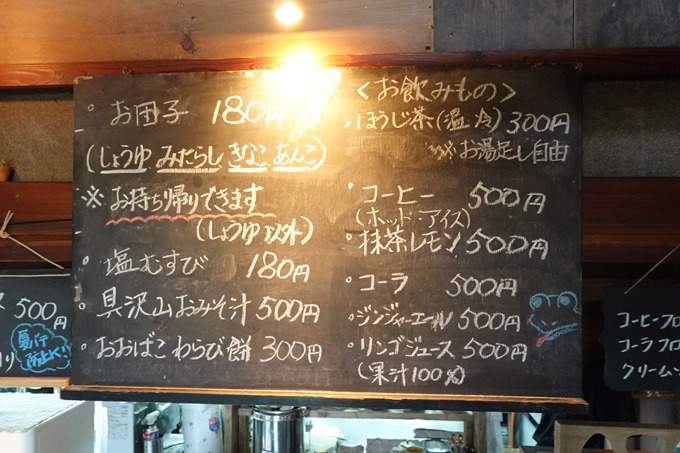 ・お団子 180円
(しょうゆ みたらし きなこ あんこ)
※お持ち帰りできます
(しょうゆ以外)
・塩むすび 180円
・具沢山おみそ汁 500円
・おおばこわらび餅 300円
<お飲みもの>
・ほうじ茶(温・冷) 300円
※お湯足し自由
・コーヒー 500円
(ホット・アイス)
・抹茶レモン 500円
・コーラ 500円
・ジンジャーエール 500円
・リンゴジュース 500円
(果汁100%)
ス 500円
夏バテ
防止に!
コーヒーフロ
コーラフロ
クリーム